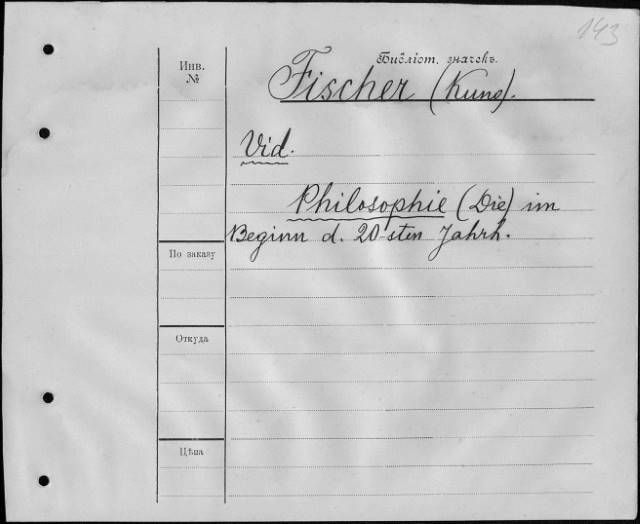 143
Библіот. значекъ.
Инв.
№
Fischer (Kuno).
Vid.
Philosophie (Die) im
Beginn d. 20-sten Jahrh.
По заказу
Откуда
Цѣна